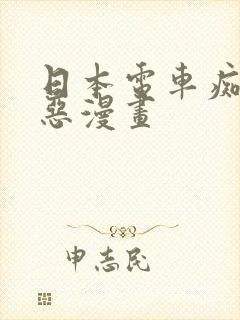 日本電車痴
惡漫畫
申志民